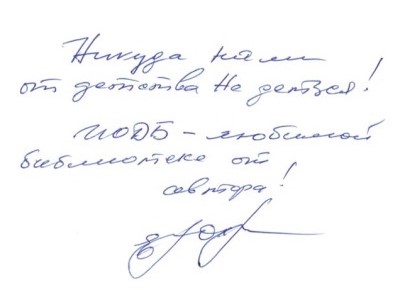 Никуда нам
от детства не деться!
ИОДБ - любимой
библиотеке от
автора!